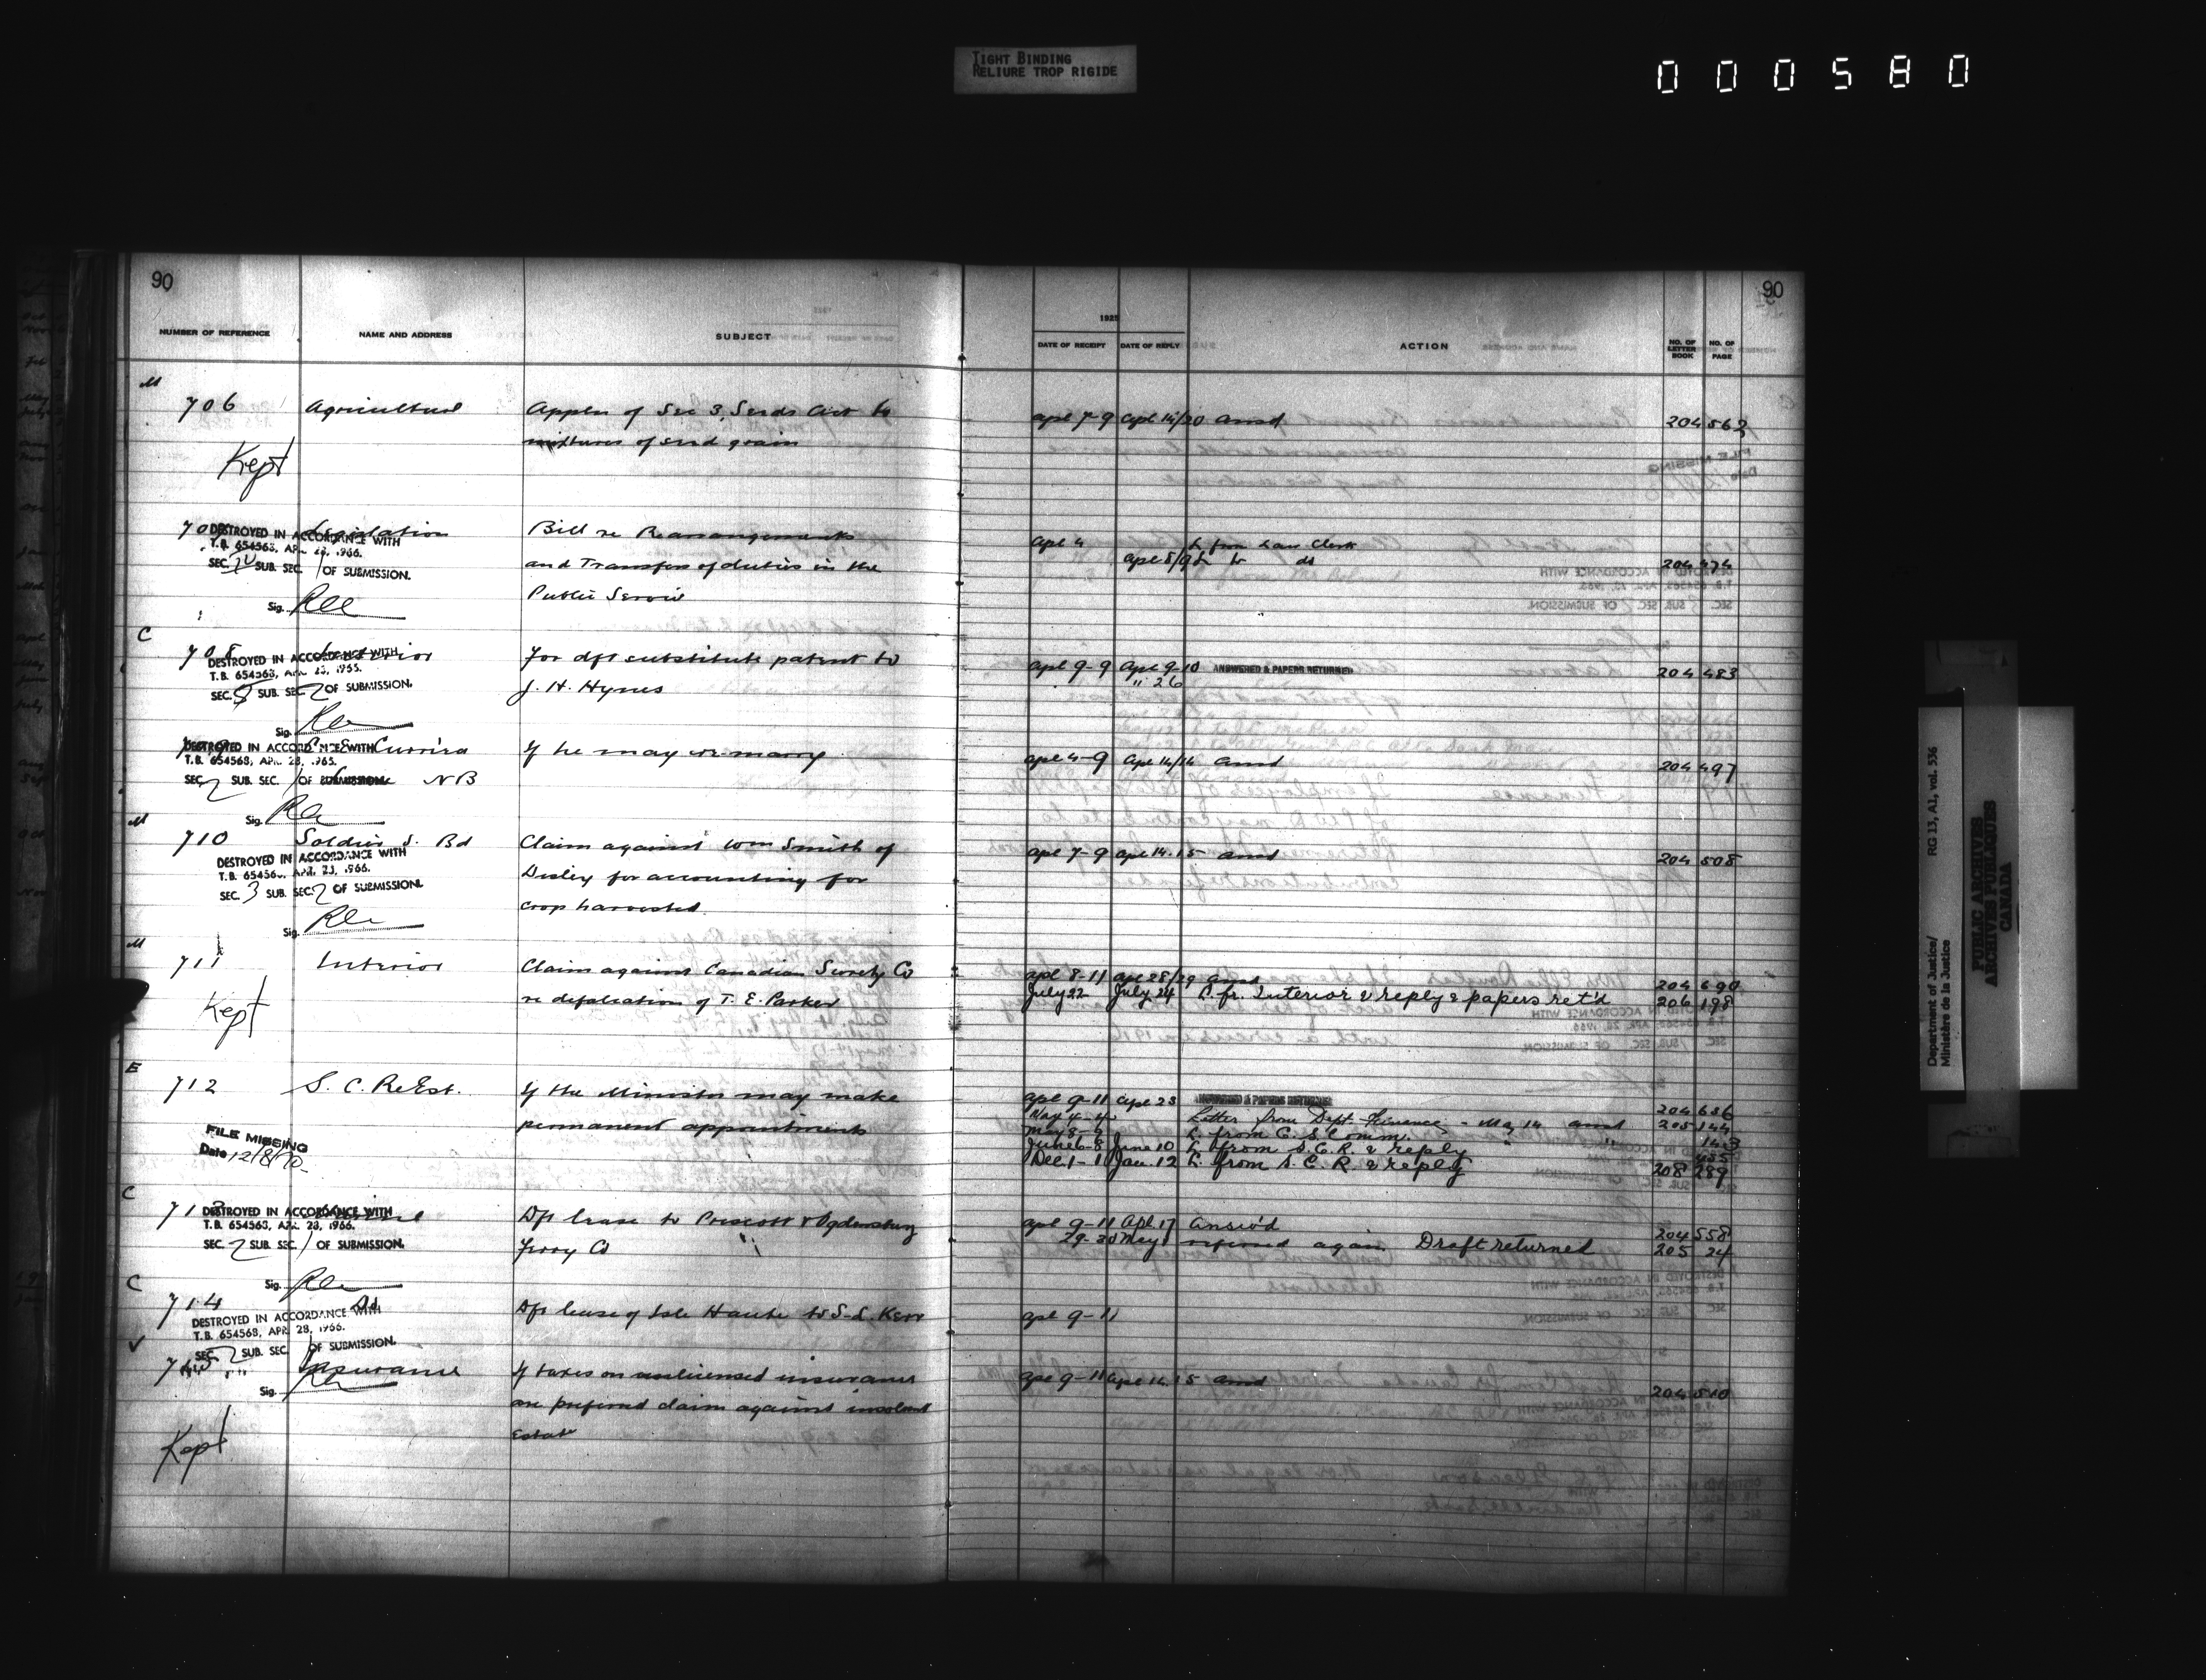 TIGHT BINDING
RELIURE TROP RIGIDE
000580
90
90
NUMBER OF REFERENCE NAME AND ADDRESS SUBJECT
1925
DATE OF RECEIPT DATE OF REPLY ACTION NO. OF LETTER BOOK NO. OF PAGE
M
706 Agricultural Applcn of Sec 3, Seeds Act to apl 7-9 apl 14/20 ansd 204 562
mixtures of seed grain
Kept
707 Legislation Bill re Rearrangements apl 4 L from Law Clerk
DESTROYED IN ACCORDANCE WITH
T.B. 654563, APR. 28, 1966.
SEC. SUB. SEC. 1 OF SUBMISSION.
and Transfers of duties in the apl 8/9 L to do 204 474
Public Service
Sig.
C
708 Interior For dft substitute patent to apl 9-9 Apl 9-10 ANSWERED & PAPERS RETURNED 204 483
DESTROYED IN ACCORDANCE WITH
T.B. 654563, APR. 28, 1966.
SEC. SUB. SEC. 2 OF SUBMISSION.
J. H. Hynes " 26
Sig.
709 If he may re marry apl 4-9 Apl 14/14 ansd 204 497
DESTROYED IN ACCORDANCE WITH
T.B. 654563, APR. 28, 1966.
SEC. 2 SUB. SEC. 1 OF SUBMISSION. NB
Sig.
M
710 Soldier S. Bd Claim against Wm Smith of apl 7-9 apl 14.15 ansd 204 508
DESTROYED IN ACCORDANCE WITH
T.B. 654563, APR. 28, 1966.
SEC. 3 SUB. SEC. 2 OF SUBMISSION.
Disley for accounting for
crop harvested
Sig.
M
711 Interior Claim against Canadian Surety Co apl 8-11 apl 28/29 ansd 204 690
re defalcation of T. E. Parker July 22 July 24 L. fr. Interior & reply & papers ret'd 206 198
Kept
E
712 S. C. ReEst. If the Minister may make apl 9-11 apl 23 ANSWERED & PAPERS RETURNED 204 636
permanent appointments May 4-4 Letter from Dept Finance - May 14 ansd 205 144
May 8-9 L. from C. S. Comm. " 143
June 6-8 June 10 L. from S. C. R. & reply 455
Dec. 1-1 Jan. 12 L. from S. C. R. & reply 208 289
FILE MISSING
Date 12/8/70
C
713 Dft lease to Prescott & Ogdensburg apl 9-11 Apl. 17 Answ'd 204 558
DESTROYED IN ACCORDANCE WITH
T.B. 654563, APR. 28, 1966.
SEC. 2 SUB. SEC. 1 OF SUBMISSION.
Ferry Co 29-30 May 1 referred again Draft returned 205 24
Sig.
C
714 Do Dft lease of Isle Haute to S. L. Kerr apl 9-11
DESTROYED IN ACCORDANCE WITH
T.B. 654563, APR. 28, 1966.
SEC. 2 SUB. SEC. 1 OF SUBMISSION.
715 Insurance If taxes on unlicensed insurance apl 9-11 apl 14.15 ansd 204 510
Sig.
are preferred claim against insolvent
Estate
Kept
Department of Justice/
Ministère de la Justice
RG 13, A1, vol. 536
PUBLIC ARCHIVES
ARCHIVES PUBLIQUES
CANADA